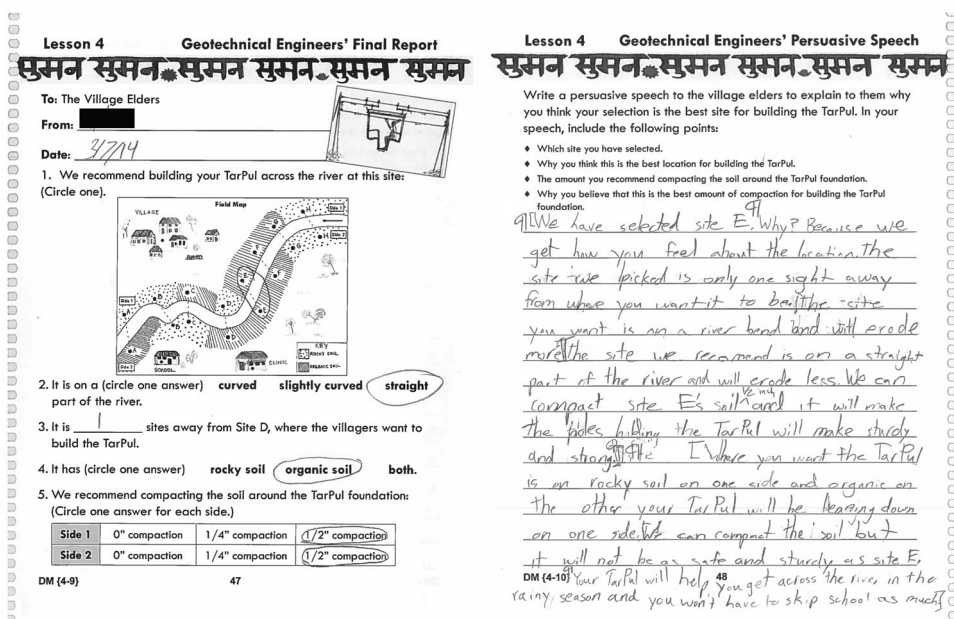 Lesson 4 Geotechnical Engineers' Final Report
सुमन सुमन सुमन सुमन सुमन सुमन
To: The Village Elders
From:
Date: 3/7/14
1. We recommend building your TarPul across the river at this site:
(Circle one).
Field Map
VILLAGE
Side 1
Side 2
Side 1
Side 2
SCHOOL
CLINIC
KEY
ROCKY SOIL
ORGANIC SOIL
2. It is on a (circle one answer) curved slightly curved straight
part of the river.
3. It is 1 sites away from Site D, where the villagers want to
build the TarPul.
4. It has (circle one answer) rocky soil organic soil both.
5. We recommend compacting the soil around the TarPul foundation:
(Circle one answer for each side.)
Side 1 0" compaction 1/4" compaction 1/2" compaction
Side 2 0" compaction 1/4" compaction 1/2" compaction
DM {4-9} 47
Lesson 4 Geotechnical Engineers' Persuasive Speech
सुमन सुमन सुमन सुमन सुमन सुमन
Write a persuasive speech to the village elders to explain to them why
you think your selection is the best site for building the TarPul. In your
speech, include the following points:
♦ Which site you have selected.
♦ Why you think this is the best location for building the TarPul.
♦ The amount you recommend compacting the soil around the TarPul foundation.
♦ Why you believe that this is the best amount of compaction for building the TarPul
foundation.
¶ We have selected site E. ¶ Why? Because we
get how you feel about the location. The
site we picked is only one sight away
from where you want it to be. The site
you want is on a river bend and will erode
more. The site we recomend is on a straight
part of the river and will erode less. We can
compact site E's soil 1/2 inch and it will make
the poles holding the TarPul will make sturdy
and strong. Where you want the TarPul
is on rocky soil on one side and organic on
the other your TarPul will be leaning down
on one side. We can compact the soil but
it will not be as safe and sturdy as site E.
DM {4-10} 48
¶ Your TarPul will help you get across the river in the
rainy season and you won't have to skip school as much